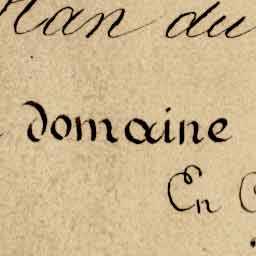 Plan du
Domaine
En